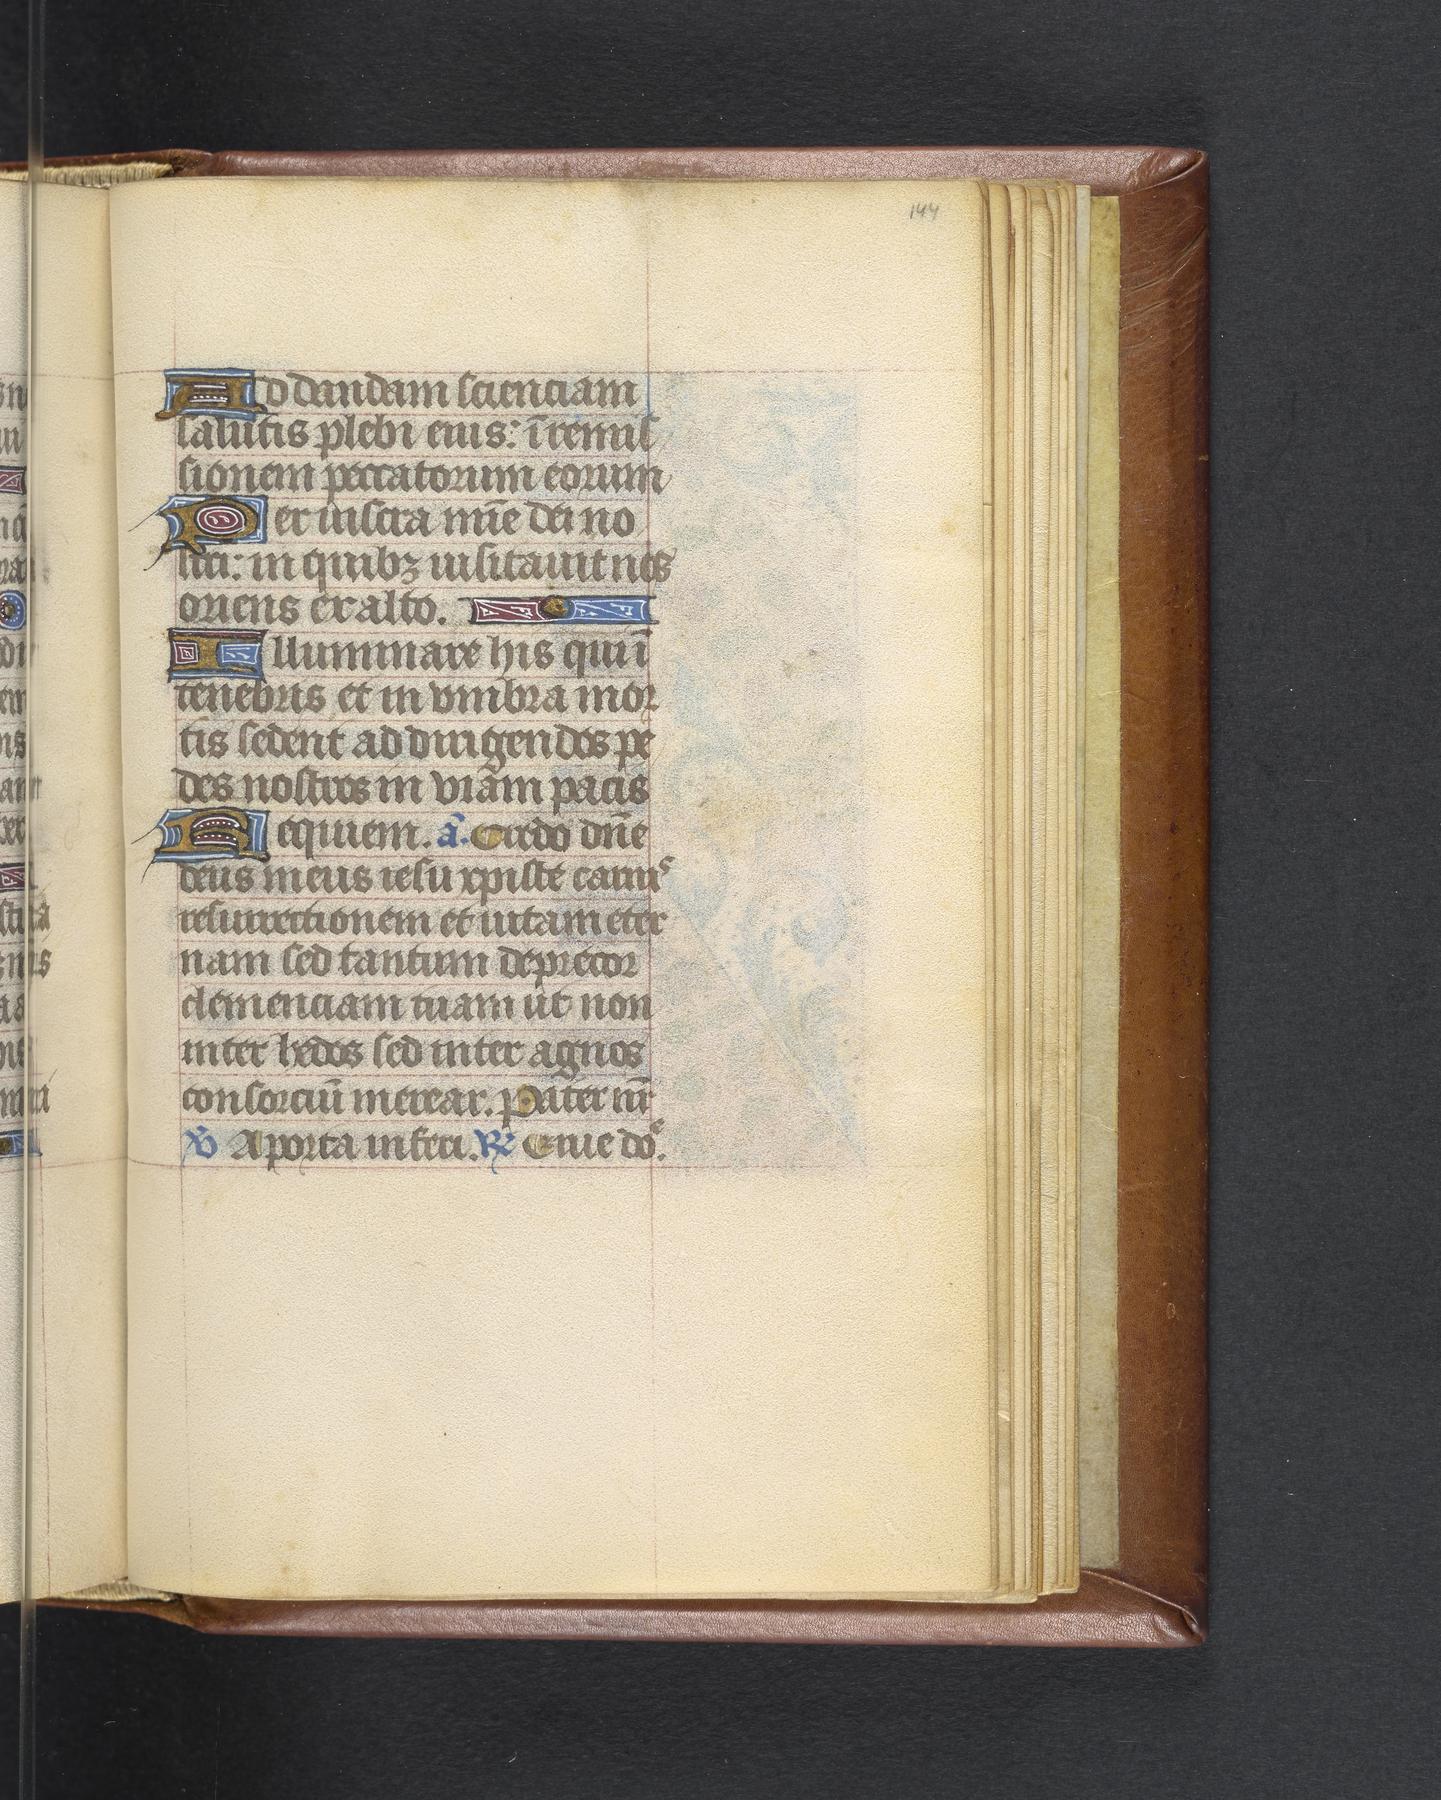 144
Ad dandam scienciam
salutis plebi eius: ī remis
sionem peccatorum eorum
Per uiscera mīe dei no
stri: in quibꝫ uisitauit nos
oriens ex alto.
Illuminare his qui ī
tenebris et in vmbra mor
tis sedent ad dirigendos pe
des nostros in viam pacis
Requiem. a. Credo dn̄e
deus meus iesu xpiste carnis
resurrectionem et uitam eter
nam sed tantum deprecor
clemenciam tuam ut non
inter hedos sed inter agnos
consorciū merear. Pater nr̄
℣ A porta inferi. ℟ Erue do